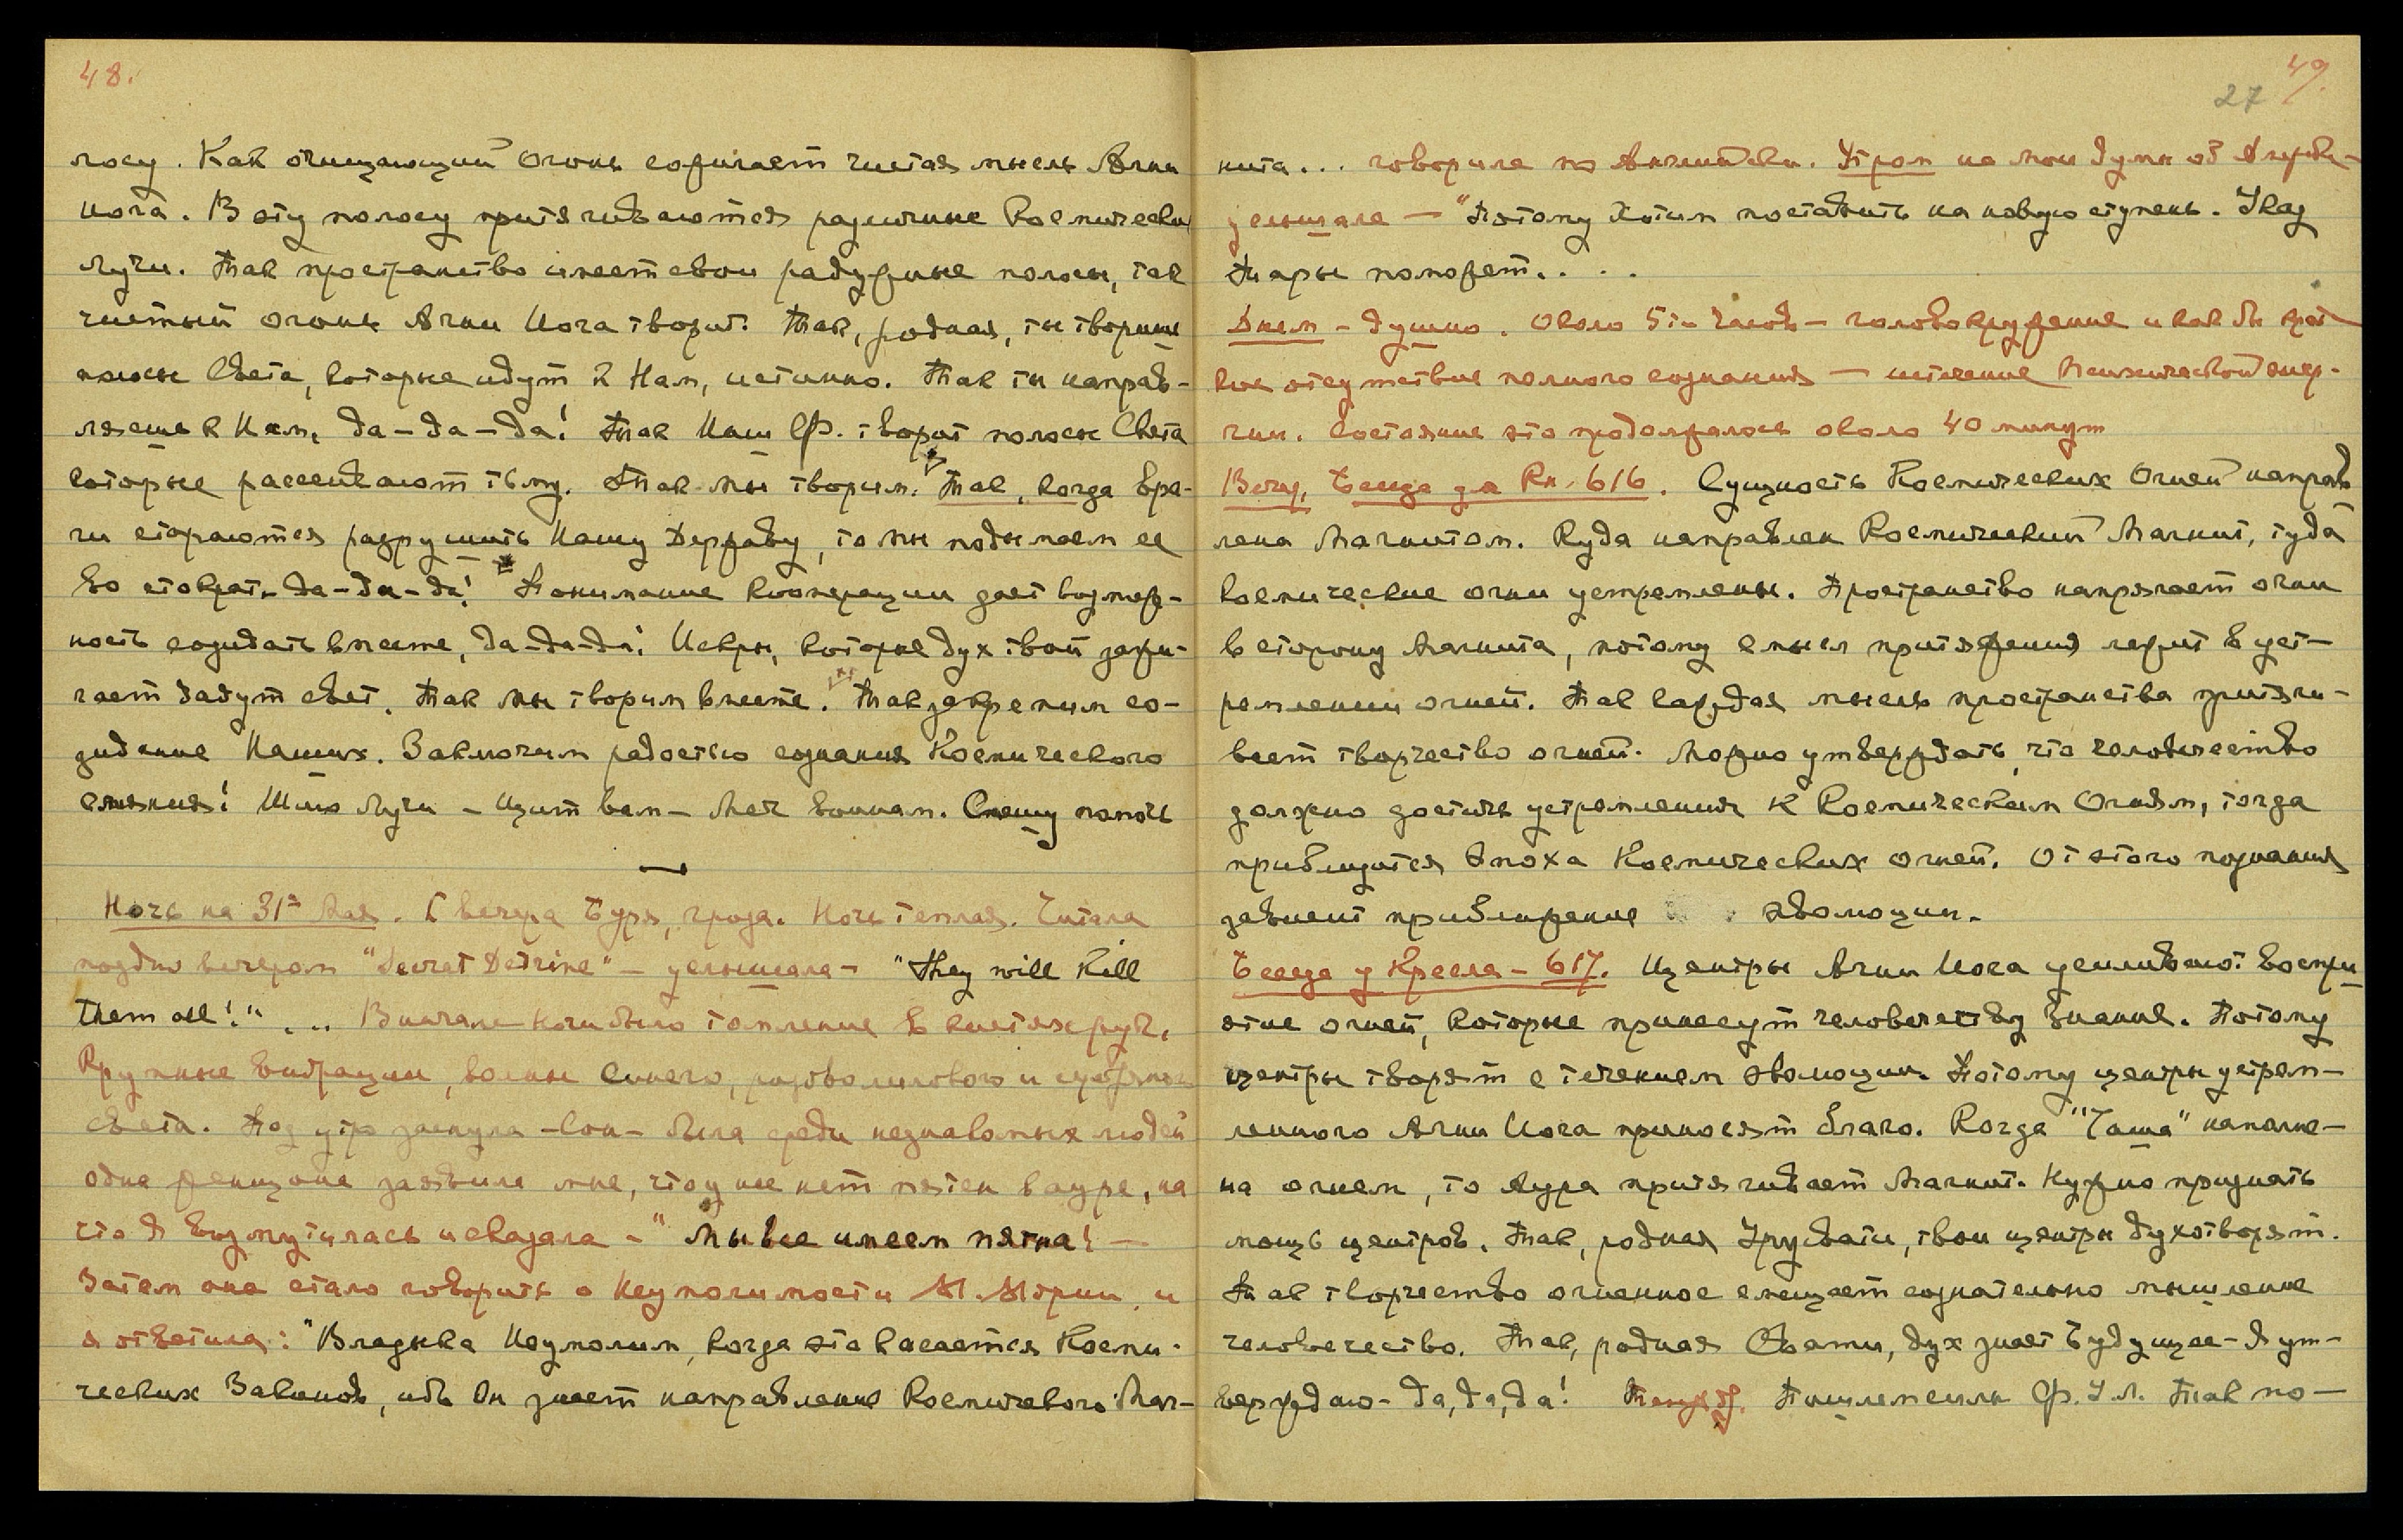 48.
лосу. Как очищающий огонь сожигает чистая мысль Агни
Йога. В эту полосу притягиваются различные Космически
лучи. Так пространство имеет свои радужные полосы, так
чистый огонь Агни Йога творит. Так, родная, ты творишь
полосы Света, которые идут к Нам, истинно. Так ты направ-
ляешь к Нам, да-да-да! Так Наш Ф. творит полосы Света
которые рассеивают тьму. Так мы творим. Так, когда вра-
ги стараются разрушить Нашу Державу, то мы подымаем ее
во стократ. Да-да-да! Понимание кооперации дает возмож-
ность созидать вместе, да-да-да! Искры, которые дух твой зажи-
гает дадут свет. Так мы творим вместе. Так закрепим со-
зидание Наших. Заключим радостью сознания Космического
слияния! Шлю Лучи - Щит вам - Меч воинам. Спешу помочь
—
Ночь на 31е Мая. С вечера буря, гроза. Ночь теплая. Читала
поздно вечером "Secret Doctrine" - услышала - "They will kill
them all!" ... Вначале ночи было томление в кистях рук.
Крупные вибрации, волны синего, розоволилового и серебряного
света. Под утро заснула - Сон - Была среди незнакомых людей
одна женщина заявила мне, что у нее нет пятен в ауре, на
что я возмутилась и сказала - "Мы все имеем пятна! —
Затем она стала говорить о Неумолимости М. Мории, и
я ответила: "Владыка Неумолим, когда это касается Косми-
ческих Законов, ибо Он знает направление Космического Маг-
49.
27
нита... говорила по Английски. Утром на мои думы об Америке
услышала — "Потому хотим поставить на новую ступень. Указ
Тары поможет. . . .
Днем - душно. Около 5ти часов - головокружение и как бы крат
кое отсутствие полного сознания — истечение Психической энер-
гии. Состояние это продолжалось около 40 минут
Вечер, Беседа для Кн. 616. Сущность Космических Огней направ
лена Магнитом. Куда направлен Космический Магнит, туда
космические огни устремлены. Пространство напрягает огни
в сторону Магнита, потому смысл притяжения лежит в уст-
ремлении огней. Так каждая мысль пространства притяги-
вает творчество огней. Можно утверждать, что человечество
должно достичь устремления к Космическим Огням, тогда
приблизится Эпоха Космических огней. От этого познания
зависит приближение эволюции.
Беседа у Кресла - 617. Центры Агни Йога усиливают воспри
ятие огней, которые принесут человечеству знание. Потому
центры творят с течением эволюции. Потому центры устрем-
ленного Агни Йога приносят благо. Когда "Чаша" наполне-
на огнем, то Аура притягивает Магнит. Нужно признать
мощь центров. Так, родная Урусвати, твои центры духотворят.
Так творчество огненное смещает сознательно мышление
человечество. Так, родная Свати, дух знает будущее - Я ут-
верждаю - да, да, да! Пошлем силы Ф. У Л. Так по-